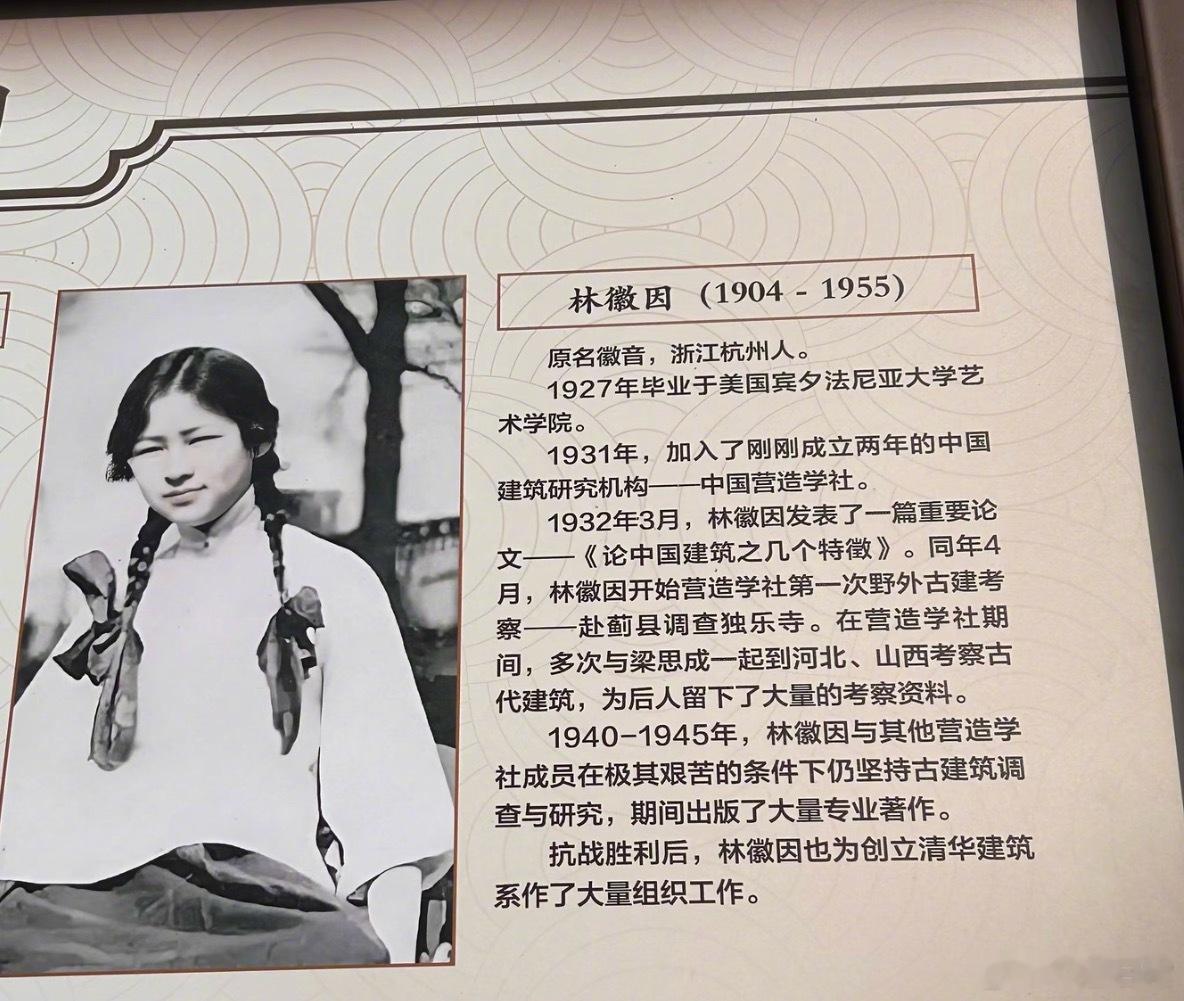 林徽因（1904 - 1955）
原名徽音，浙江杭州人。
1927年毕业于美国宾夕法尼亚大学艺
术学院。
1931年，加入了刚刚成立两年的中国
建筑研究机构——中国营造学社。
1932年3月，林徽因发表了一篇重要论
文——《论中国建筑之几个特徵》。同年4
月，林徽因开始营造学社第一次野外古建考
察——赴蓟县调查独乐寺。在营造学社期
间，多次与梁思成一起到河北、山西考察古
代建筑，为后人留下了大量的考察资料。
1940-1945年，林徽因与其他营造学
社成员在极其艰苦的条件下仍坚持古建筑调
查与研究，期间出版了大量专业著作。
抗战胜利后，林徽因也为创立清华建筑
系作了大量组织工作。